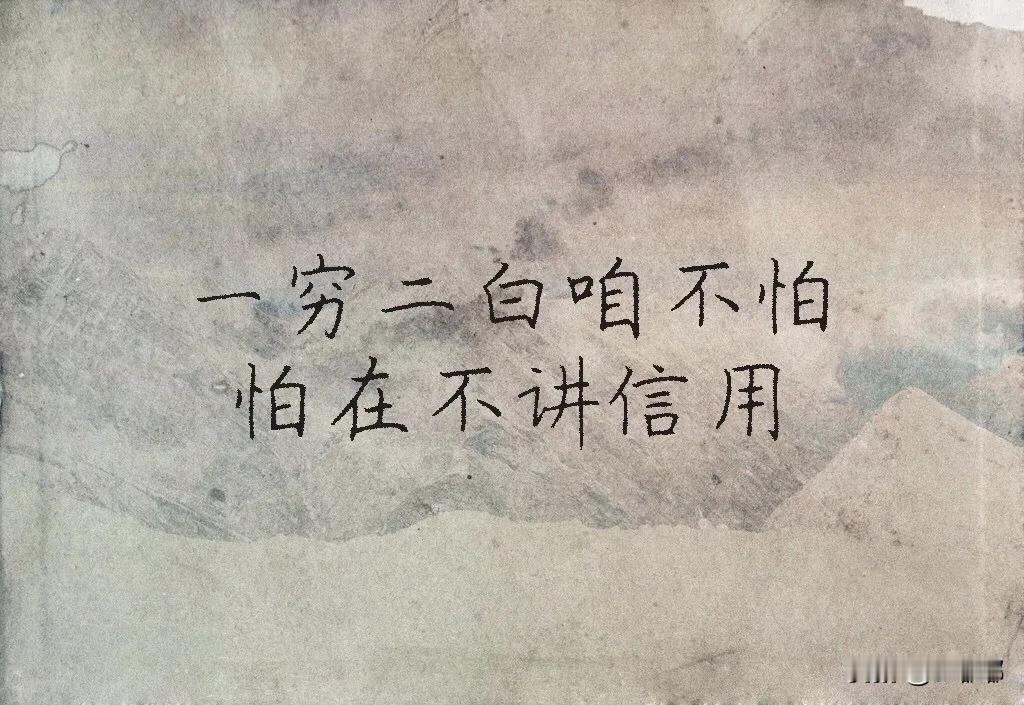 一穷二白咱不怕
怕在不讲信用